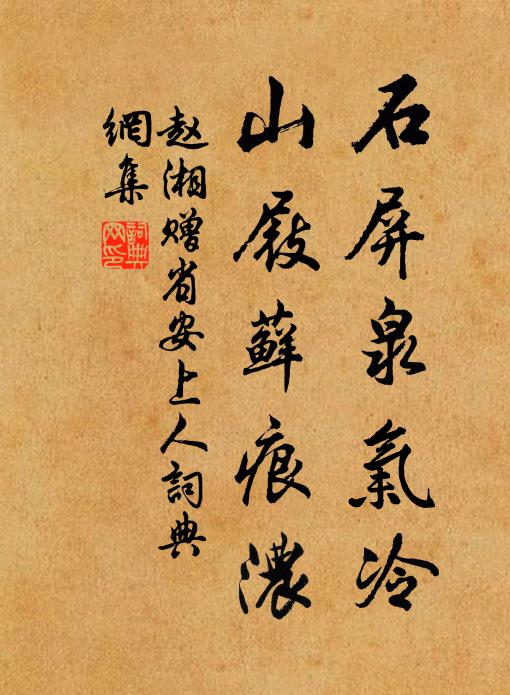 石屏泉氣冷
山屐蘚痕濃
赵湘贈省安上人詞典
網集
詞典
网印